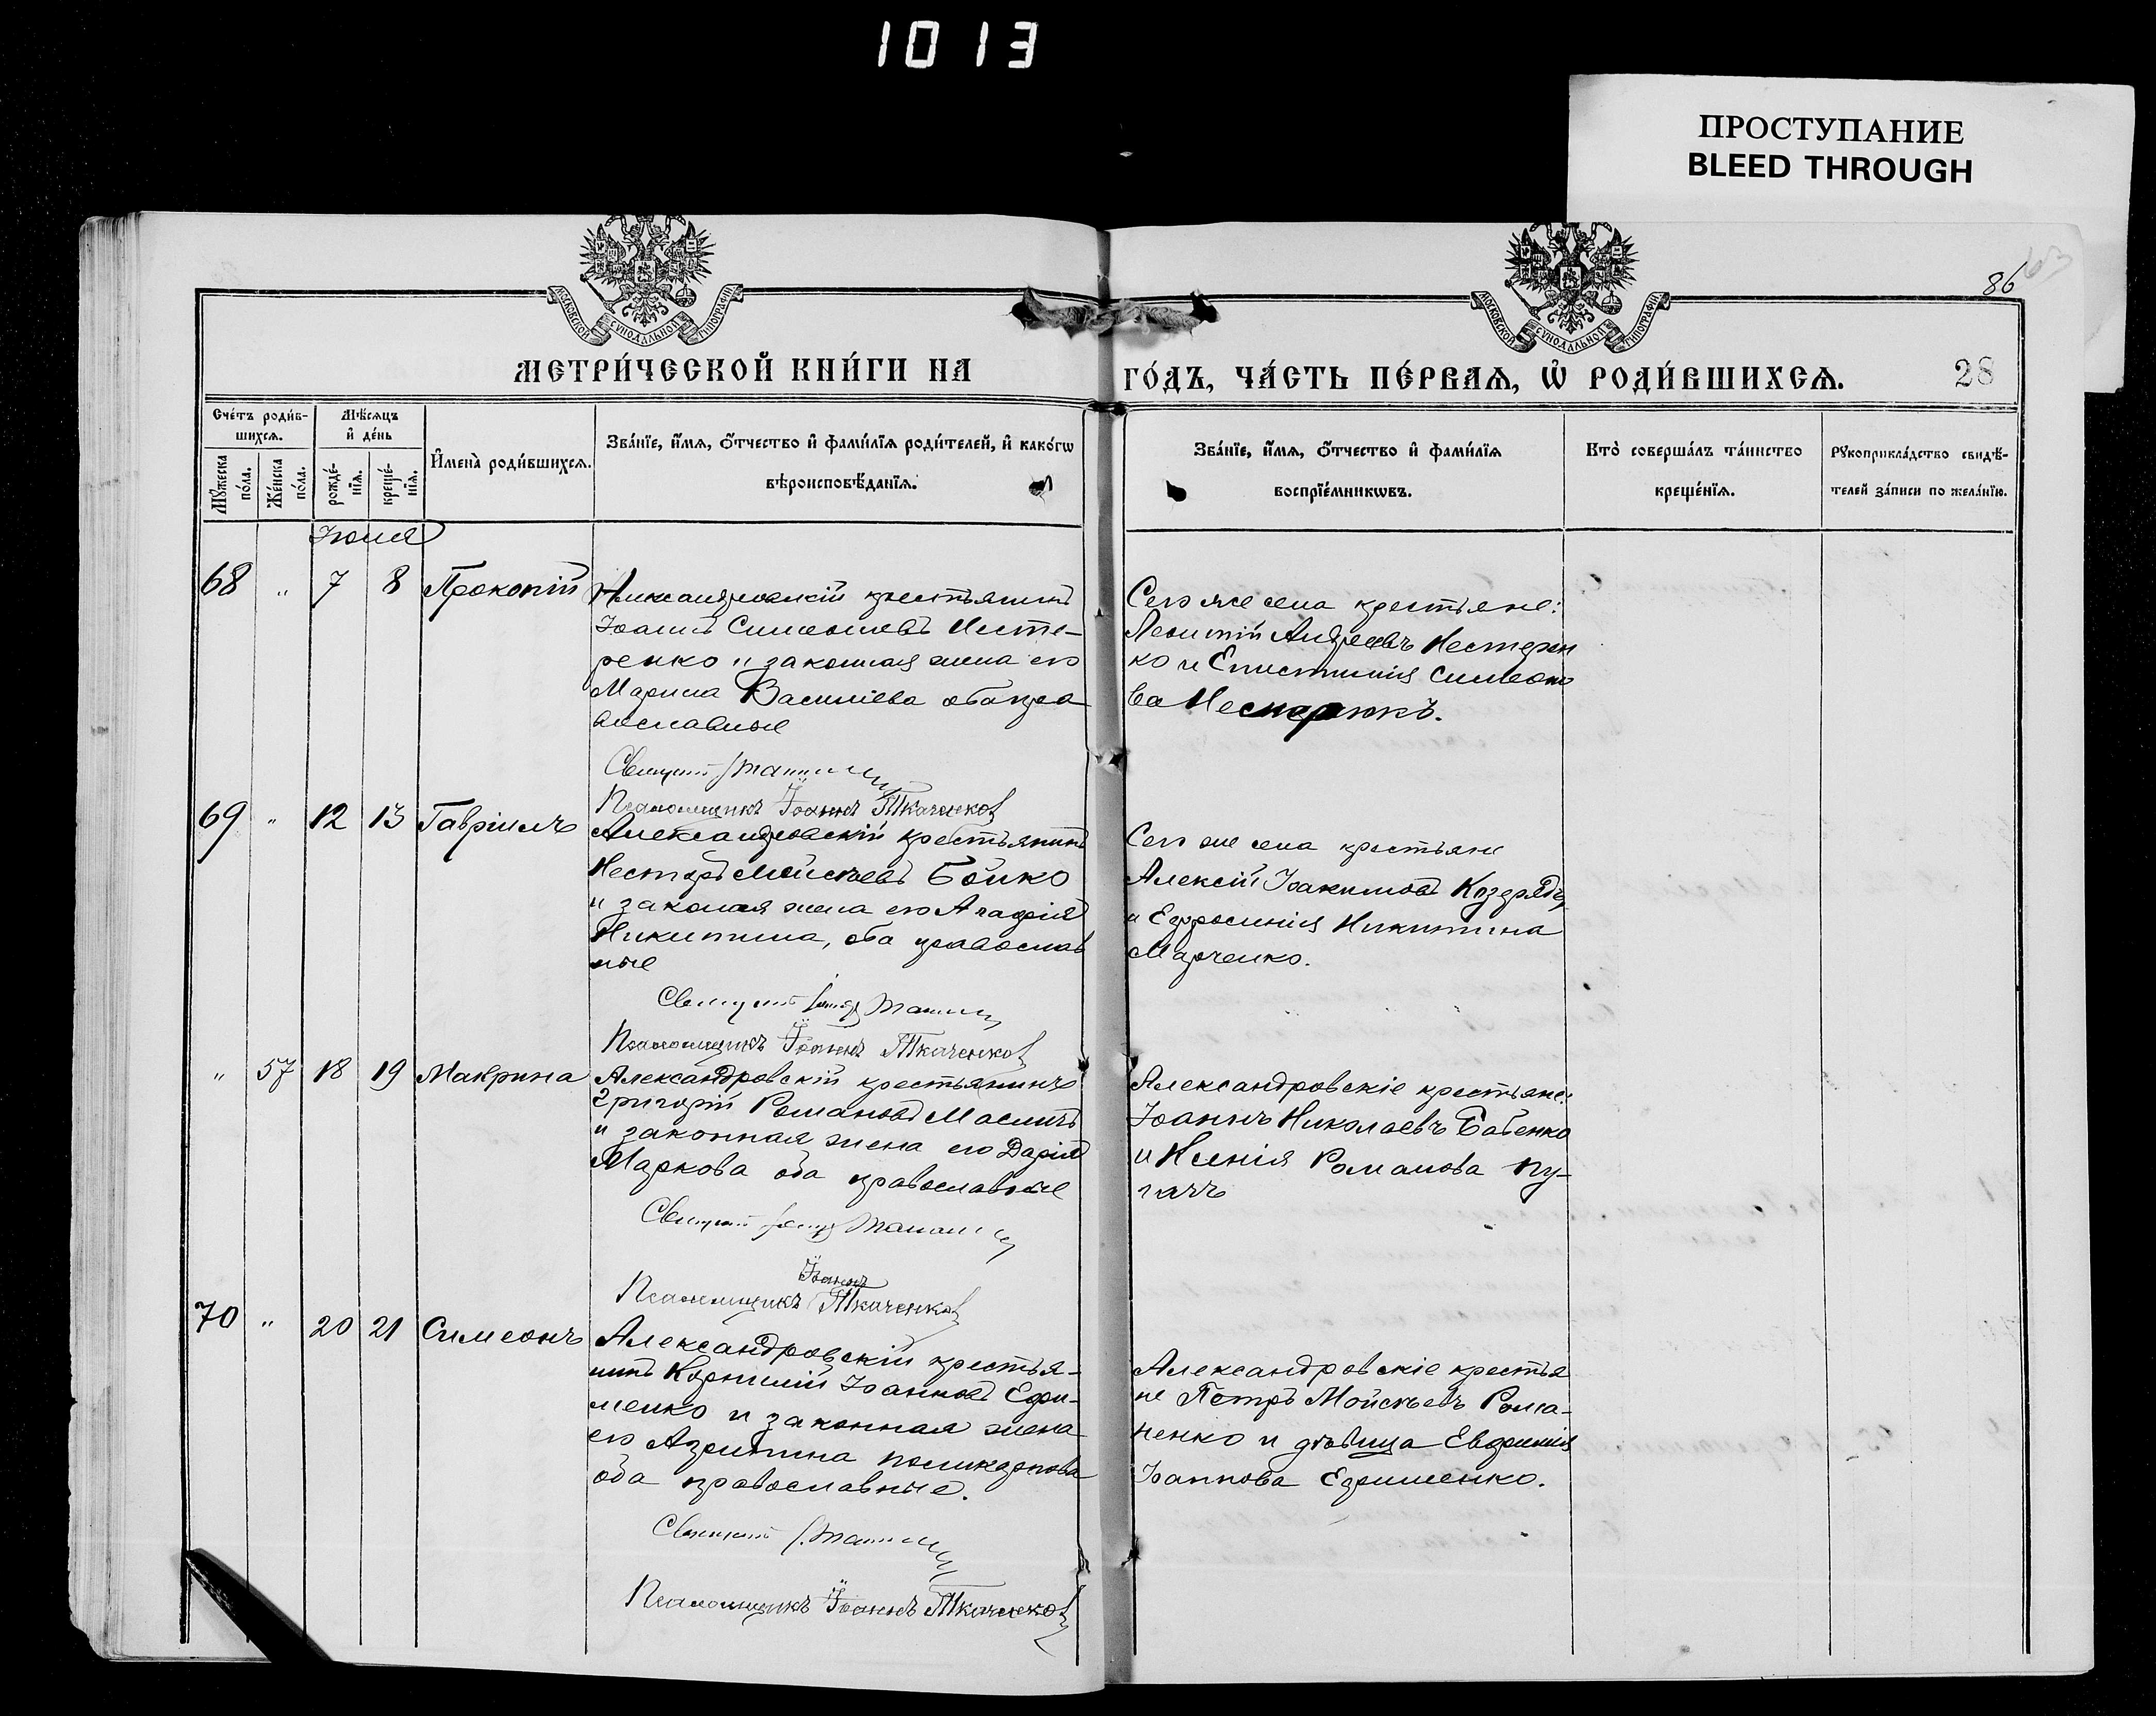 1013
ПРОСТУПАНИЕ
BLEED THROUGH
МОСКОВСКОЙ СѴНОДАЛЬНОЙ ТИПОГРАФІИ
МОСКОВСКОЙ СѴНОДАЛЬНОЙ ТИПОГРАФІИ
86
МЕТРИ́ЧЕСКОЙ КНИ́ГИ НА
ГО́ДЪ, ЧА́СТЬ ПЕ́РВАѦ, Ѡ҆ РОДИ́ВШИХСѦ.
28
Сче́тъ роди́в-
шихсѧ.
Мѣ́сѧцъ
и҆ де́нь
Мꙋ́жеска
по́ла.
Же́нска
по́ла.
рожде́-
нїѧ.
креще́-
нїѧ.
И҆мена̀ роди́вшихсѧ.
Зва́нїе, и҆́мѧ, ѻ҆́тчество и҆ фами́лїѧ роди́телей, и҆ како́гѡ
вѣроисповѣ́данїѧ.
Зва́нїе, и҆́мѧ, ѻ҆́тчество и҆ фами́лїѧ
воспрїе́мникѡвъ.
Кто̀ соверша́лъ та́инство
креще́нїѧ.
Рꙋкоприкла́дство свидѣ́-
телей за́писи по жела́нїю.
68 " 7 8 Прокопій
Александровскій крестьянинъ
Іоаннъ Симеоновъ Несте-
ренко и законная жена его
Марина Василіева оба пра
вославные
Сего же села крестьяне:
Леонтій Андреевъ Нестерен
ко и Епистимія Симеоно
ва
Священ
Псаломщикъ Іоаннъ Ткаченков
69 " 12 13 Гавріилъ
Александровскій крестьянинъ
Несторъ Мойсѣевъ Бойко
и законая жена его Агафія
Никитина, оба православ
ные
Сего же села крестьяне
Алексій Іоакимовъ
и Ефросинія Никитина
Марченко.
Священ
Псаломщикъ Іоаннъ Ткаченков
" 57 18 19 Макрина
Александровскій крестьянинъ
Григорій Романовъ Маслич
и законная жена его Дарія
Маркова оба православные
Александровскіе крестьяне:
Іоаннъ Николаевъ Бабенко
и Ксенія Романова Пу-
гачъ
Священ
Іоаннъ
Псаломщикъ Ткаченков
70 " 20 21 Симеонъ
Александровскій крестья-
нинъ Корнилій Іоанновъ Ефи-
менко и законная жена
его Агрипина Поликарпова
оба православные.
Александровскіе крестья
не Петръ Мойсѣевъ Рома-
ненко и дѣвица Евфимія
Іоаннова Ефименко.
Священ
Псаломщикъ Іоаннъ Ткаченков